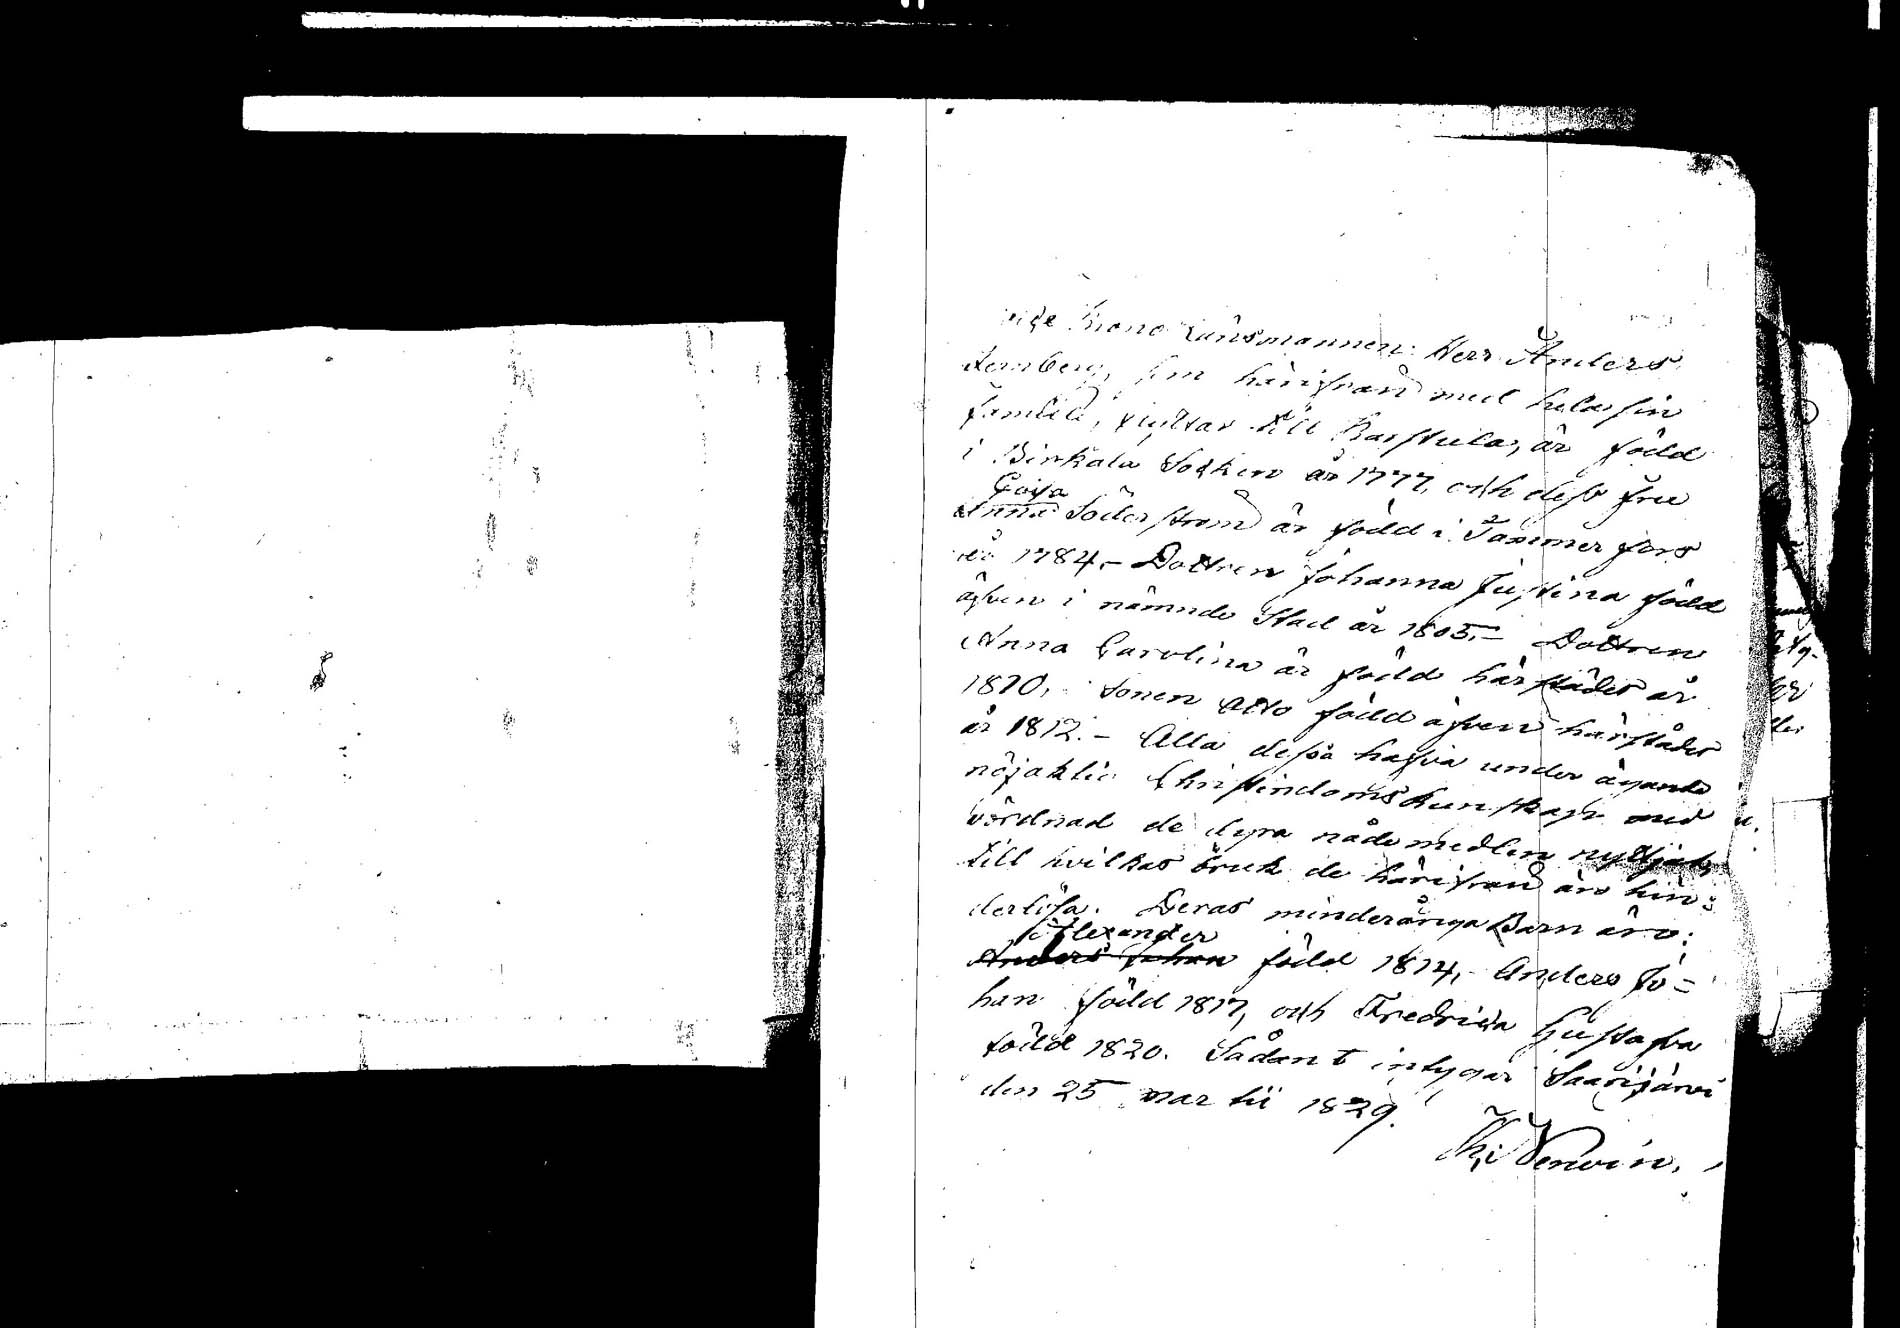 vice Krono Länsmannen Herr Anders
Lernberg, som härifrån med hela sin
familie, flyttar till Karstula, är född
i Birkala Sockn år 1777, och dess Fru
Caisa
Anna Söderström är född i Tammerfors
år 1784,- Dottren Johanna Justina född
äfven i nämnde Stad år 1805,- Dottren
Anna Carolina är född härstädes år
1810, Sonen Otto född äfven härstädes
år 1812.- Alla dessa hafva under ägande
nöjaktig Christindoms kunskap med
vördnad de dyra nådemedlen nyttjat,
till hvilkas bruk de härifrån äro hin=
derlösa. Deras minderåriga Barn äro:
Alexander
Anders Johan född 1814,- Anders Jo=
han född 1817, och Fredrica Gustafva
född 1820. Sådant intygar Saarijärvi
den 25 martii 1829.